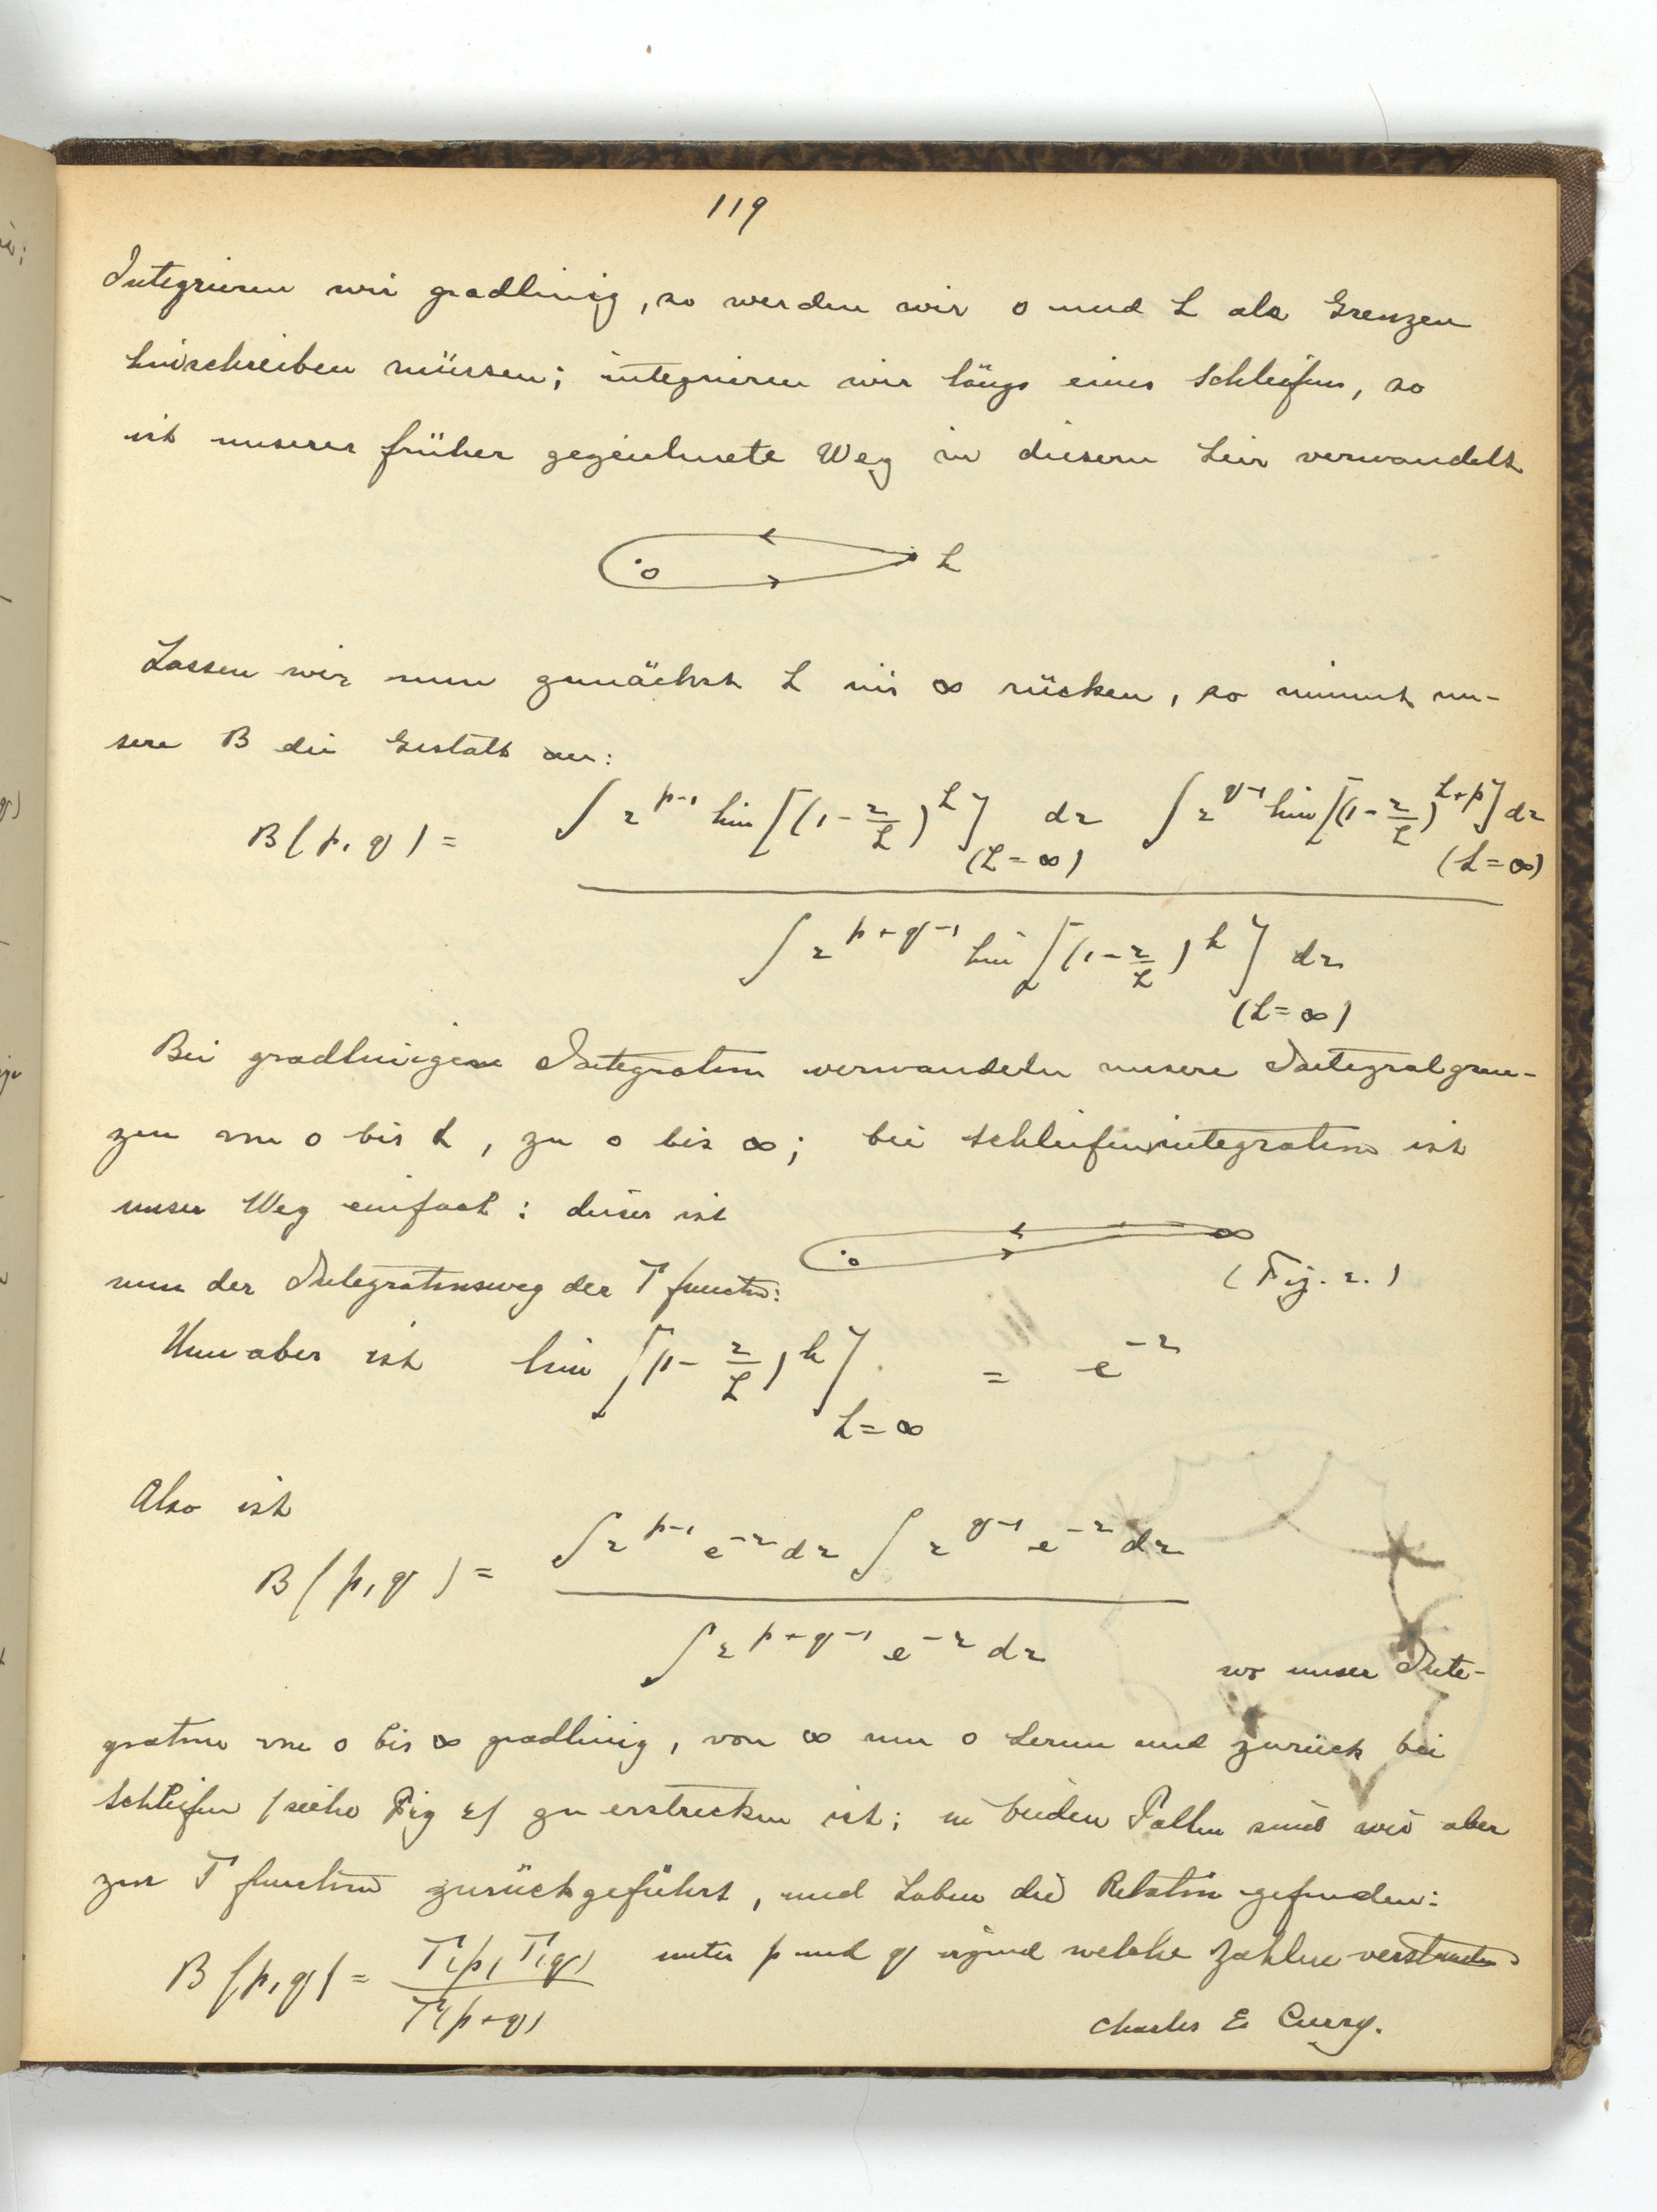 119
Integrieren wir gradlinig, so werden wir 0 und L als Grenzen
hinschreiben müssen; integrieren wir längs eines Schleifens, so
ist unserer früher gezeichnete Weg in diesem hier verwandelt
.0 L
Lassen wir nun zunächst L ins ∞ rücken, so nimmt un-
sere B die Gestalt an:
B(p, q) = ∫ r^{p-1} lim [(1 - r/L)^L] dr (L = ∞) ∫ r^{q-1} lim [(1 - r/L)^{L+p}] dr (L = ∞)
∫ r^{p+q-1} lim [(1 - r/L)^L] dr (L = ∞)
Bei gradlinigem Integration verwandeln unsere Integralgren-
zen von 0 bis L, zu 0 bis ∞; bei Schleifenintegration ist
unser Weg einfach: dieser ist
.0 ∞
(Fig. 2.)
nun der Integrationsweg der Γ function:
Nun aber ist lim [(1 - r/L)^L] L = ∞ = e^{-r}
Also ist
B(p, q) = ∫ r^{p-1} e^{-r} dr ∫ r^{q-1} e^{-r} dr
∫ r^{p+q-1} e^{-r} dr
wo unser Inte-
gration von 0 bis ∞ gradlinig, von ∞ um 0 herum und zurück bei
Schleifen (siehe Fig 2) zu erstrecken ist; in beiden Fallen sind wir aber
zur Γ function zurückgeführt, und haben die Relation gefunden:
B(p, q) = Γ(p) Γ(q) / Γ(p+q) unter p und q irgend welche Zahlen verstanden
Charles E. Curry.